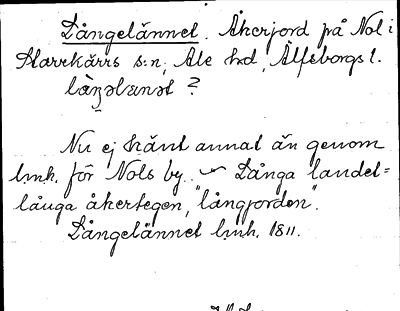 Långelännet. Åkerjord på Nol i
Starrkärrs s:n, Ale hd, Älfsborgs l.
làŋəlænət ?
Nu ej känt annat än genom
lmh. för Nols by. ~ Långa landet =
långa åkertegen, "långjorden".
Långelännet lmh. 1811.